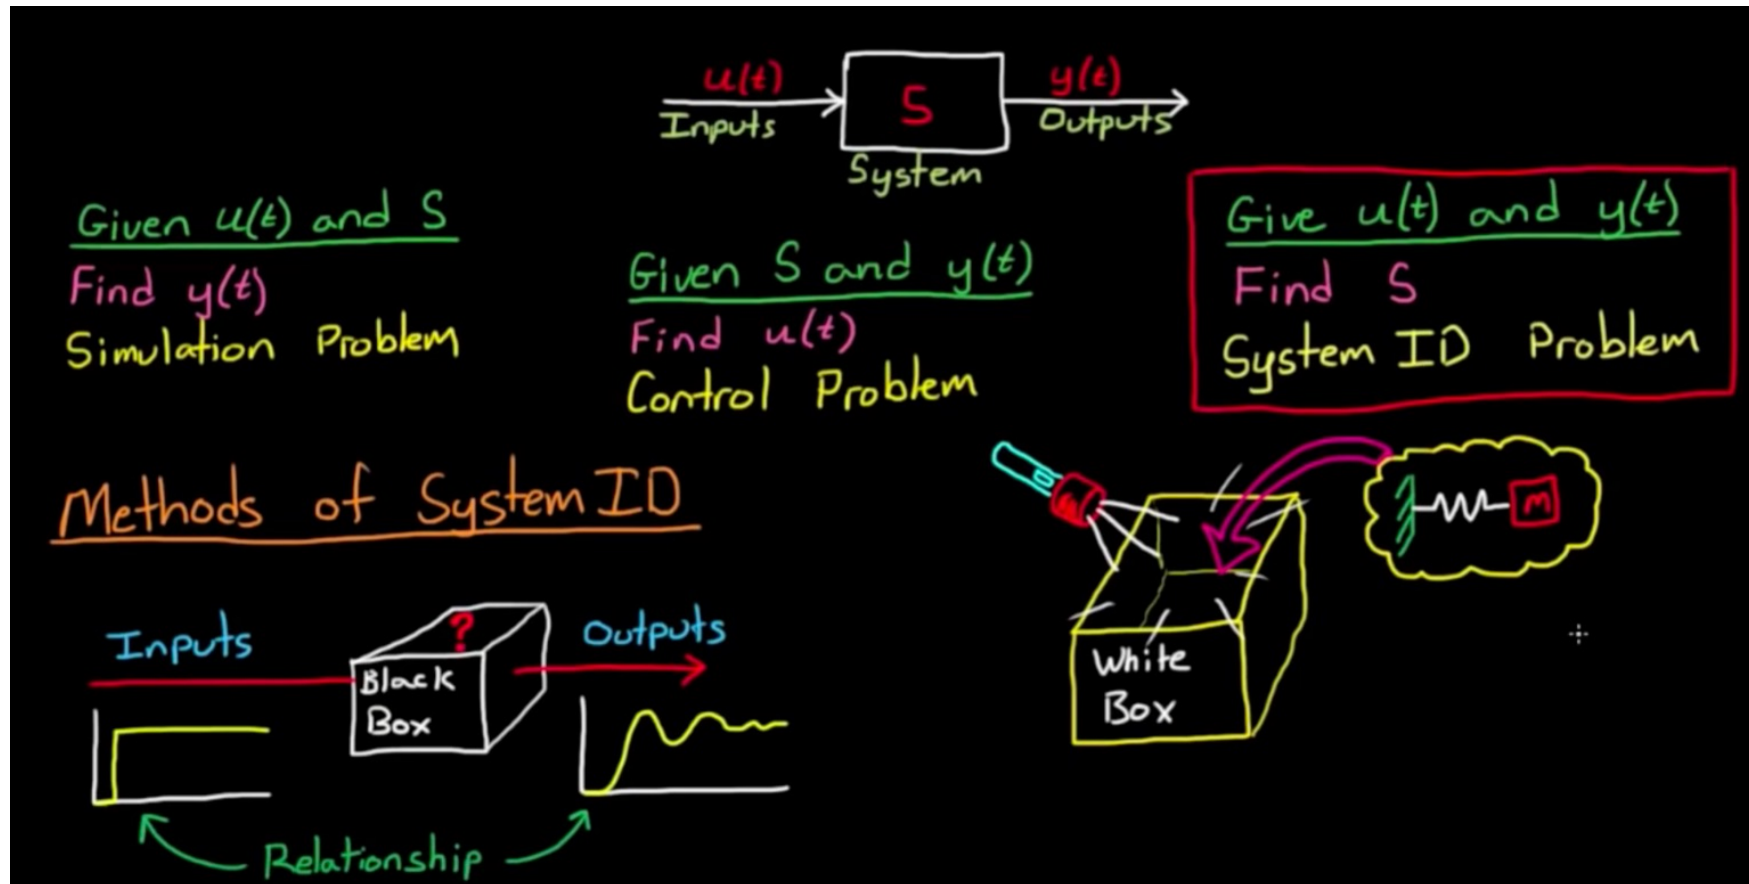 u(t)
Inputs
S
System
y(t)
Outputs
Given u(t) and S
Find y(t)
Simulation Problem
Given S and y(t)
Find u(t)
Control Problem
Give u(t) and y(t)
Find S
System ID Problem
Methods of System ID
Inputs
?
Black
Box
Outputs
Relationship
White
Box
M